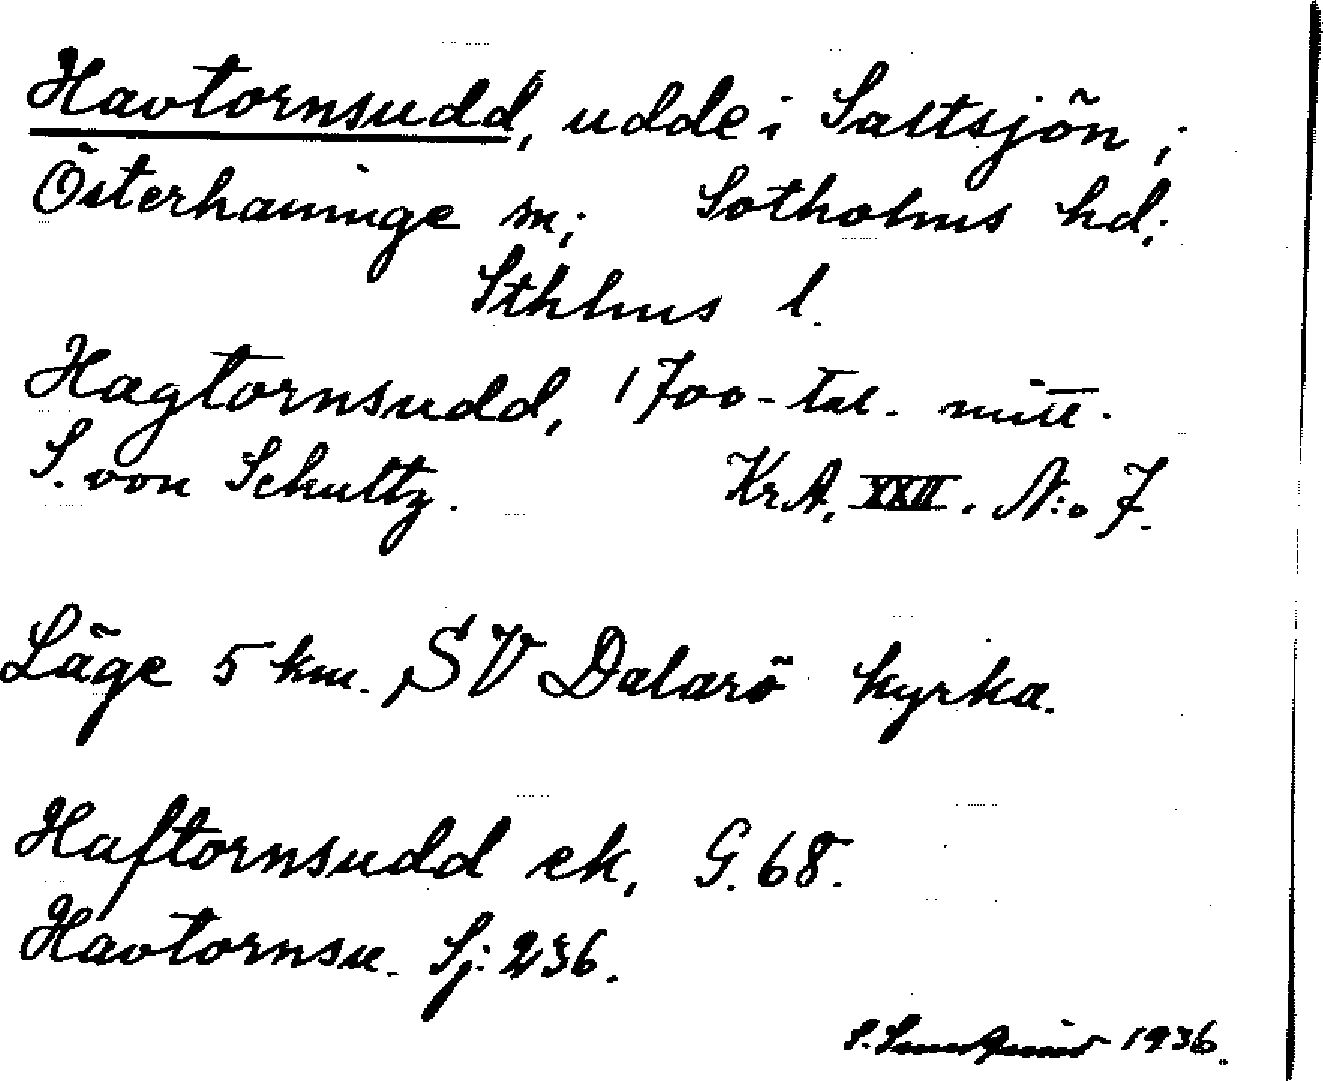 Havtornsudd, udde i Saltsjön;
Österhaninge sn; Sotholms hd;
Sthlms l.
Hagtornsudd, 1700-tal. mitt.
S. von Schultz. KrA, XXII. N:o 7.
Läge 5 km. SV Dalarö kyrka.
Haftornsudd ek, G. 68.
Havtornsu. Sj: 236.
S. 1936.